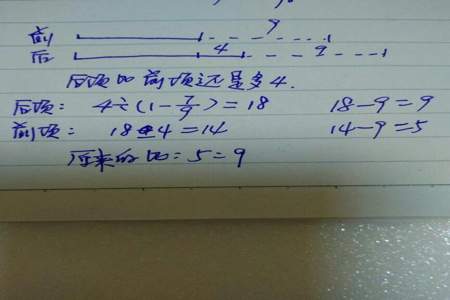 9
前
4 9
后
后项比前项还是多4.
后项: 4÷(1-7/9)=18 18-9=9
前项: 18-4=14 14-9=5
原来的比:5=9